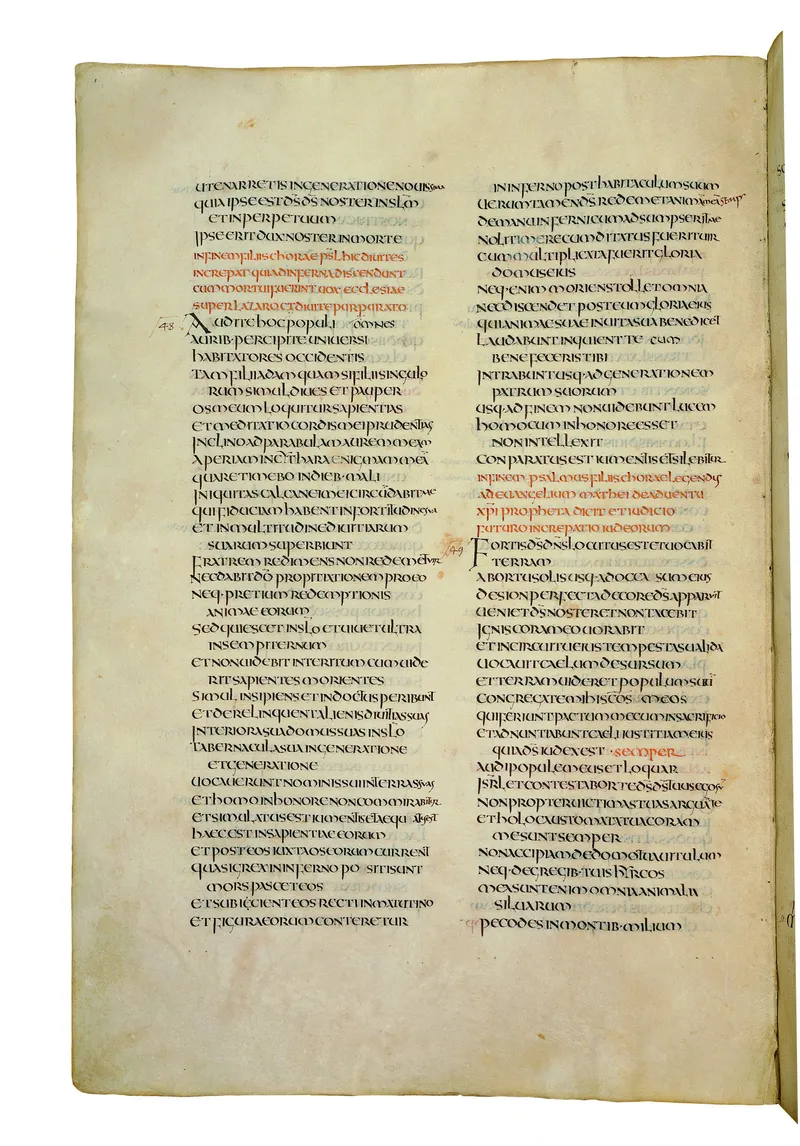 UTENARRETIS INGENERATIONE NOUISSIMA
QUIA IPSE EST D̅S̅ D̅S̅ NOSTER IN S̅L̅M̅
ET IN PERPETUUM
IPSE ERIT DUX NOSTER IN MORTE
IN FINEM FILIIS CHORAE PSL HIC DIUITES
INCREPAT QUI AD INFERNA DISCENDUNT
CUM MORTUI FUERINT UOX ECCLESIAE
SUPER LAZARO ET DIUITE PURPURATO
48 AUDITE HOC POPULI OMNES
AURIB· PERCIPITE UNIUERSI
HABITATORES OCCIDENTIS
TAM FILII ADAM QUAM SI FILII SINGULO
RUM SIMUL DIUES ET PAUPER
OS MEUM LOQUITUR SAPIENTIAS
ET MEDITATIO CORDIS MEI PRUDENTIAS
INCLINO AD PARABULAM AUREM MEAM
APERIAM IN CYTHARA ENIGMAM MEA̅
QUARE TIMEBO IN DIEB· MALI
INIQUITAS CALCANEI MEI CIRCU̅DABIT ME
QUI FIDUCIAM HABENT IN FORTITUDINE SUA
ET IN MULTITUDINE DIUITIARUM
SUARUM SUPERBIUNT
FRATREM REDIMENS NON REDEMETUR
NEC DABIT D̅O̅ PROPITIATIONEM PRO EO
NEQ· PRETIUM REDEMPTIONIS
ANIMAE EORUM
SED QUIESCET IN S̅L̅O̅ ET UIUET ULTRA
IN SEMPITERNUM
ET NON UIDEBIT INTERITUM CUM UIDE
RIT SAPIENTES MORIENTES
SIMUL INSIPIENS ET INDOCTUS PERIBUNT
ET DERELINQUENT ALIENIS DIUITIAS SUAS
INTERIORA SUA DOMUS SUAS IN S̅L̅O̅
TABERNACULA SUA IN GENERATIONE
ET GENERATIONE
UOCAUERUNT NOMINIS SUI IN TERRAS SUAS
ET HOMO IN HONORE NON COMMIRABITUR
ET SIMULATUS EST IUMENTIS ET AEQU
HAEC EST INSAPIENTIAE EORUM
ET POST EOS IUXTA OS EORUM CURRENT
QUASI GREX IN INFERNO PO SITI SUNT
MORS PASCET EOS
ET SUBICIENT EOS RECTI IN MATUTINO
ET FIGURA EORUM CONTERETUR
IN INFERNO POST HABITACULUM SUUM
UERUMTAMEN D̅S̅ REDEMET ANIMAM MEAM
DE MANU INFERNI CUM ADSUMPSERIT ME
NOLI TIMERE CUM DITATUS FUERIT UIR
CUM MULTIPLICATA FUERIT GLORIA
DOMUS EIUS
NEQ· ENIM MORIENS TOLLET OMNIA
NEC DISCENDET POST EUM GLORIA EIUS
QUI ANIMAE SUAE IN UITA SUA BENEDICET
LAUDABUNT INQUIENT TE CUM
BENEFECERIS TIBI
INTRABUNT USQ· AD GENERATIONEM
PATRUM SUORUM
USQ· AD FINEM NON UIDEBUNT LUCEM
HOMO CUM IN HONORE ESSET
NON INTELLEXIT
CONPARATUS EST IUMENTIS ET SILEBITUR
IN FINEM PSALMUS FILIIS CHORAE LEGENDUS
AD EUANGELIUM MATHEI DE ADUENTU
X̅P̅I̅ PROPHETA DICIT ET IUDICIO
FUTURO INCREPATIO IUDEORUM
49 FORTIS D̅S̅ D̅N̅S̅ LOCUTUS EST ET UOCABIT
TERRAM
AB ORTU SOLIS USQ· AD OCCA SUM EIUS
DE SION PERFECTA DECORE D̅S̅ APPARUIT
UENIET D̅S̅ NOSTER ET NON TACEBIT
IGNIS CORAM EO UORABIT
ET IN CIRCUITU EIUS TEMPESTAS UALIDA
UOCAUIT CAELUM DESURSUM
ET TERRAM UIDERET POPULUM SUU̅
CONGREGATE MIHI S̅C̅O̅S̅ MEOS
QUI FERIUNT PACTUM MECUM IN SACRIFICIO
ET ADNUNTIABUNT CAELI IUSTITIAM EIUS
QUIA D̅S̅ IUDEX EST ·SEMPER
AUDI POPULE MEUS ET LOQUAR
ISR̅L̅ ET CONTESTABOR TE D̅S̅ D̅S̅ TUUS EGO SUM
NON PROPTER UICTIMAS TUAS ARGUA̅ TE
ET HOLOCAUSTOMATA TUA CORAM
ME SUNT SEMPER
NON ACCIPIAM DE DOMO TUA UITULUM
NEQ· DE GREGIB· TUIS HYRCOS
MEA SUNT ENIM OMNIA ANIMALIA
SILUARUM
PECODES IN MONTIB· MILIUM